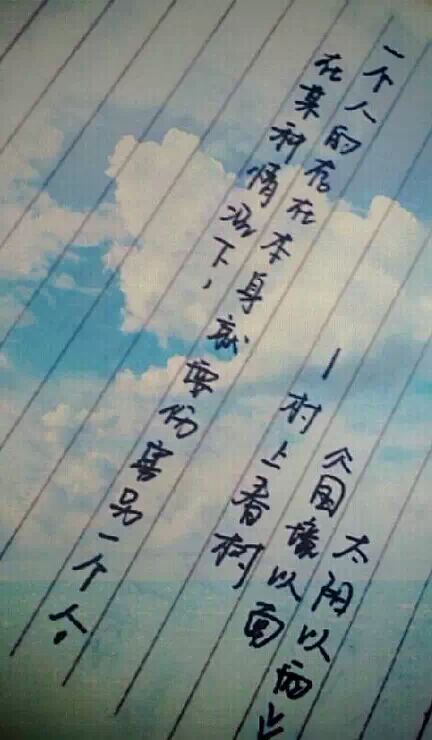 一个人的存在本身
在某种情况下，就要伤害另一个人。
—村上春树
《国境以南
太阳以西》